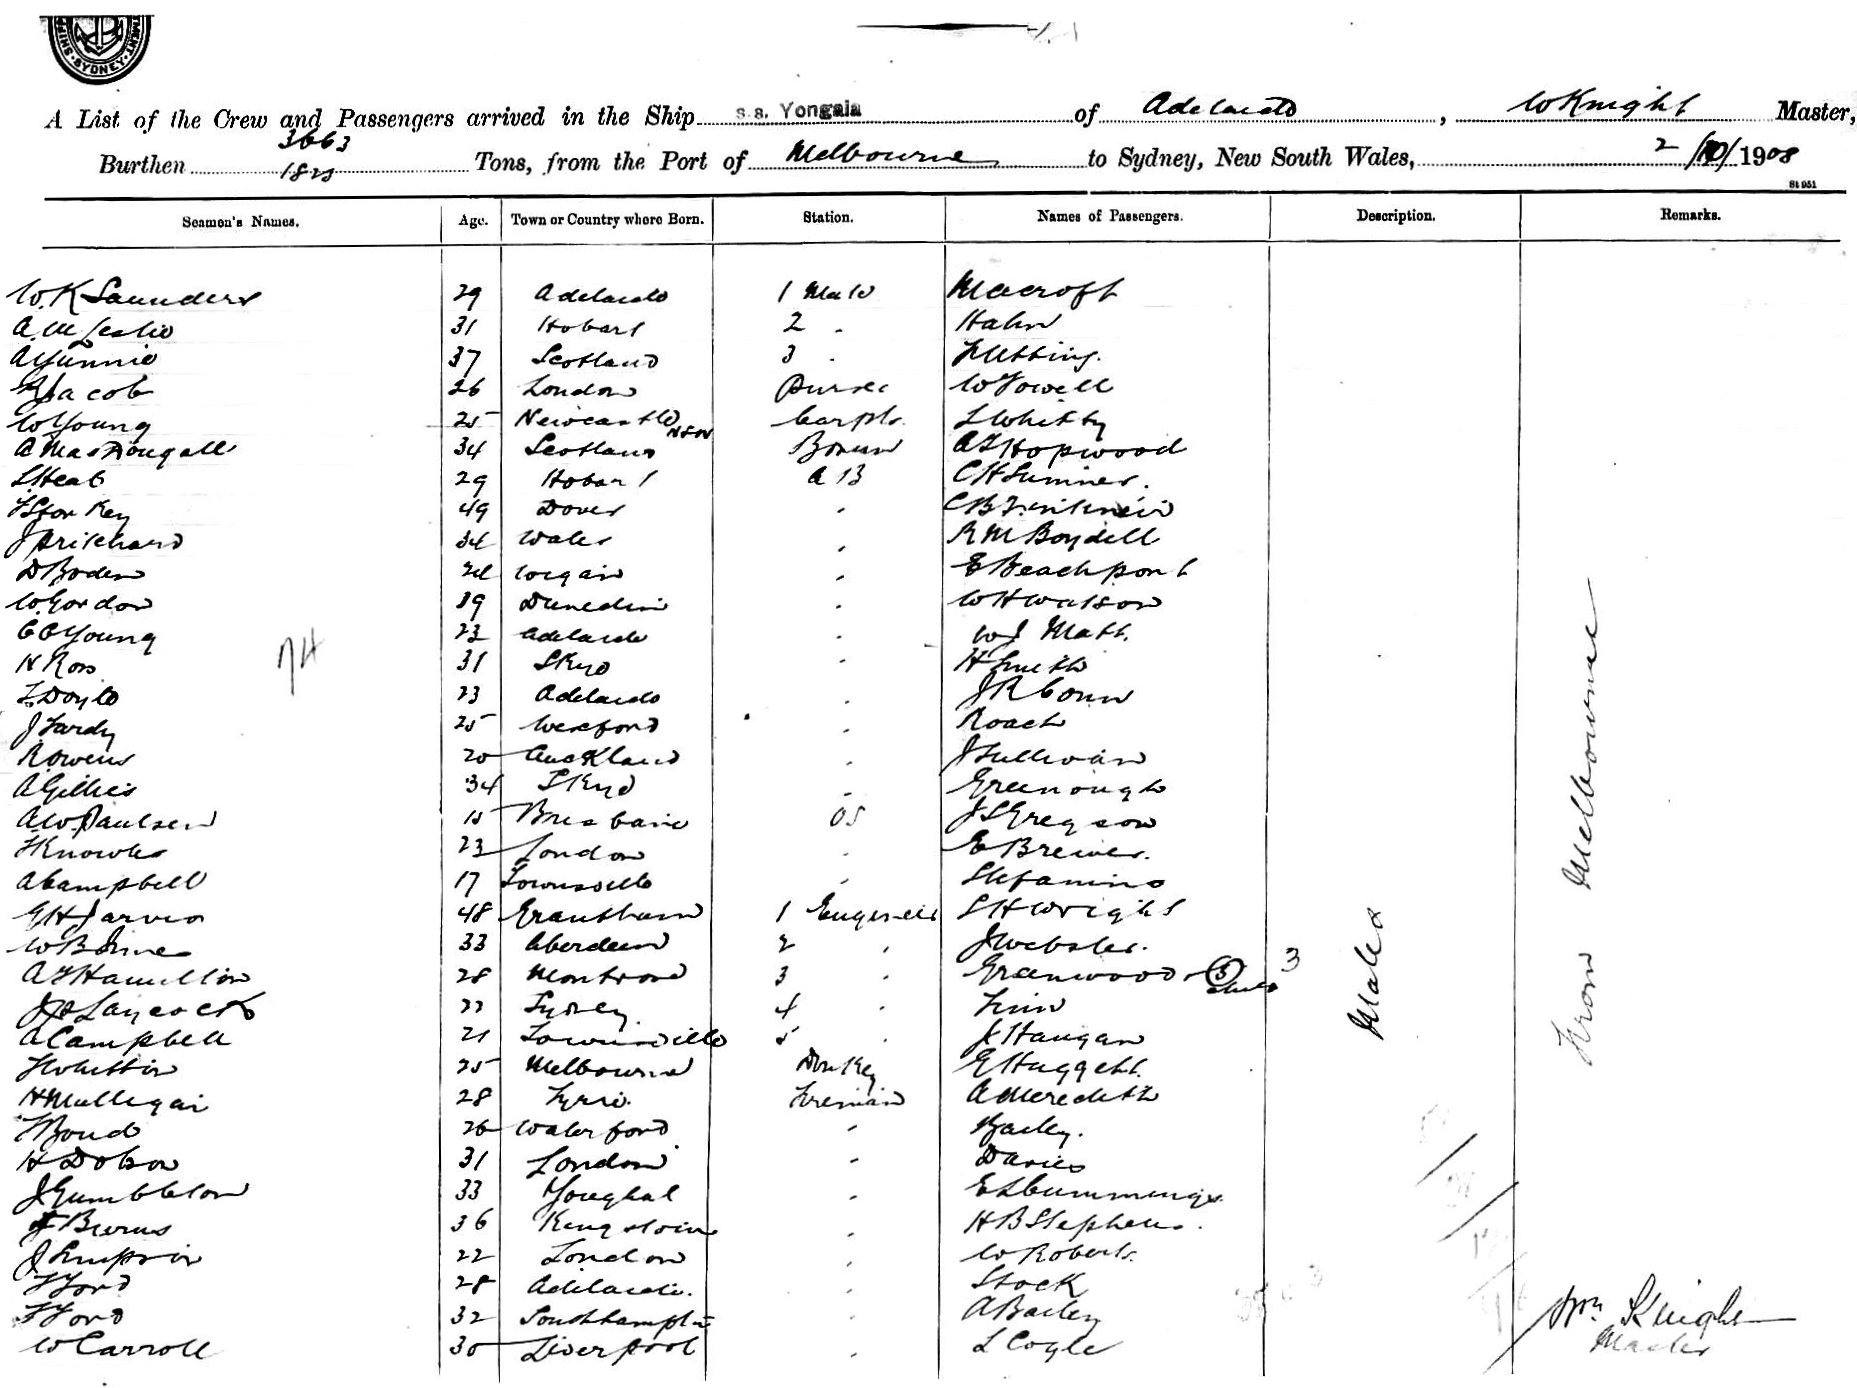 SYDNEY
A List of the Crew and Passengers arrived in the Ship s.s. Yongala of Adelaide, W Knight Master,
Burthen 3663 1825 Tons, from the Port of Melbourne to Sydney, New South Wales, 2/10/1908
St 951
Seamen's Names. Age. Town or Country where Born. Station. Names of Passengers. Description. Remarks.
W. K Saunders 29 Adelaide 1 Mate Macroft
A. M Leslie 31 Hobart 2 . Hahn
37 Scotland 3 . Nutting.
Jacob 26 London Purser W Towell
W Young 25 Newcastle NSW Carptr. L Whitby
A MacDougall 34 Scotland Bosun A L Hopwood
L Heat 29 Hobart A B C H Sumner.
F Storkey 49 Dover C B
J Prichard 34 Wales R M Boydell
D Boden 24 Wigan E Beachpont
W. Gordon 39 Dunedin W H Watson
C C Young 23 Adelaide W J Matt.
74
H Ross 31 Skye H Smith
T Doyle 23 Adelaide J R Conn
J Hardy 25 Wexford Roach
R Owens 20 Auckland J Sullivan
A Gillies 34 Skye Greenough
A W Paulsen 18 Brisbane OS J S Gregson
F Knowles 23 London E Brewer.
A Campbell 17 Townsville Stefanino
G H Jarvis 48 Grantham 1 Engineer S H Wright
W B Innes 33 Aberdeen 2 J Webster.
A F Hamilton 28 Montrose 3 Greenwood 3
Laycock 22 Sydney 4 Finn
A Campbell 21 Townsville 5 J Haugan
F Whittin 25 Melbourne Donkey G Huggett.
H Mulligan 28 Fireman A Meredith
F Bond 26 Waterford Bailey.
H Dobson 31 London Davies
J Gumbleton 33 Youghal E L Cummings
J Burns 36 Kingstown H B Stephens.
J Simpson 22 London W Roberts.
F Ford 28 Adelaide. Stock
F Ford 32 Southampton A Bailey
W Carroll 30 Liverpool L Coyle
Males
From Melbourne
Wm Knight
Master